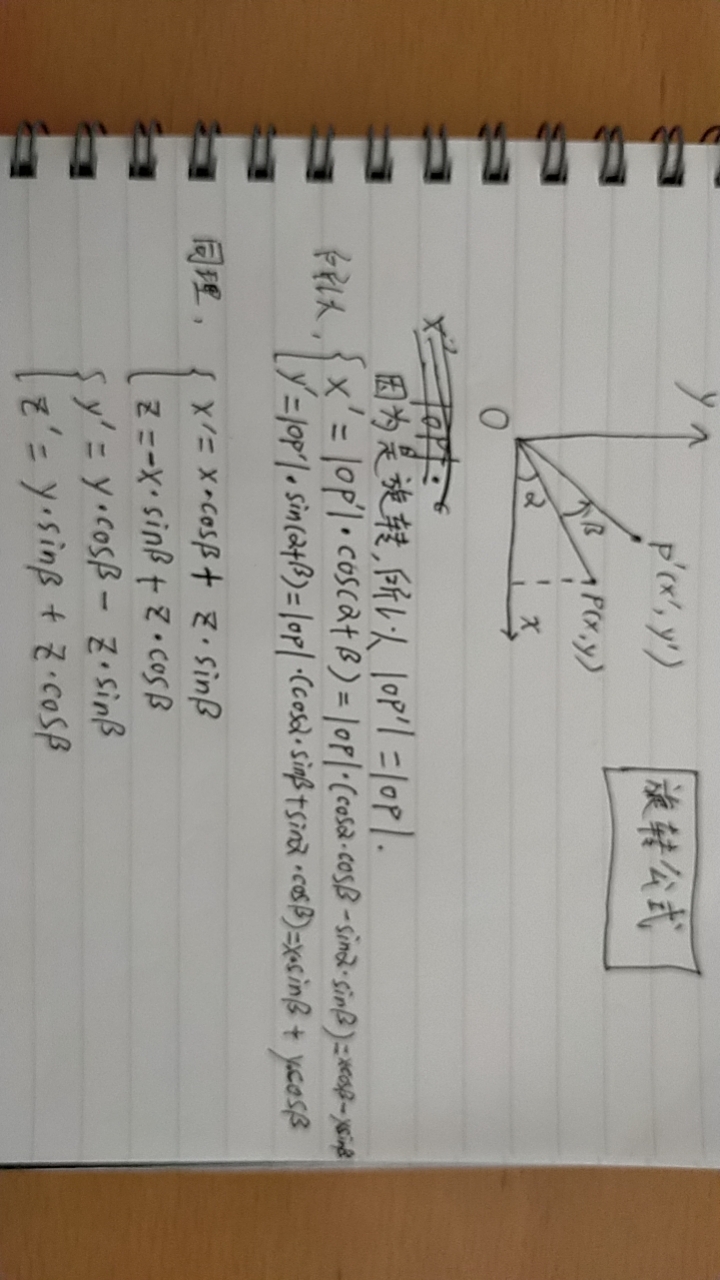 旋转公式
y
P'(x', y')
β
P(x,y)
α
x
O
因为是旋转,所以 |OP'| = |OP|.
所以, { x' = |OP'|·cos(α+β) = |OP|·(cosα·cosβ - sinα·sinβ) = xcosβ - ysinβ
y' = |OP'|·sin(α+β) = |OP|·(cosα·sinβ + sinα·cosβ) = x·sinβ + y·cosβ
同理, { x' = x·cosβ + z·sinβ
z = -x·sinβ + z·cosβ
{ y' = y·cosβ - z·sinβ
z' = y·sinβ + z·cosβ